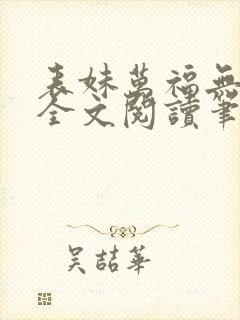 表妹萬福無
全文閱讀筆
吴喆華